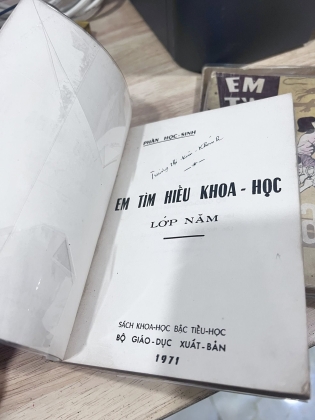 PHẦN HỌC-SINH
EM TÌM HIỂU KHOA-HỌC
LỚP NĂM
SÁCH KHOA-HỌC BẬC TIỂU-HỌC
BỘ GIÁO-DỤC XUẤT-BẢN
1971
EM